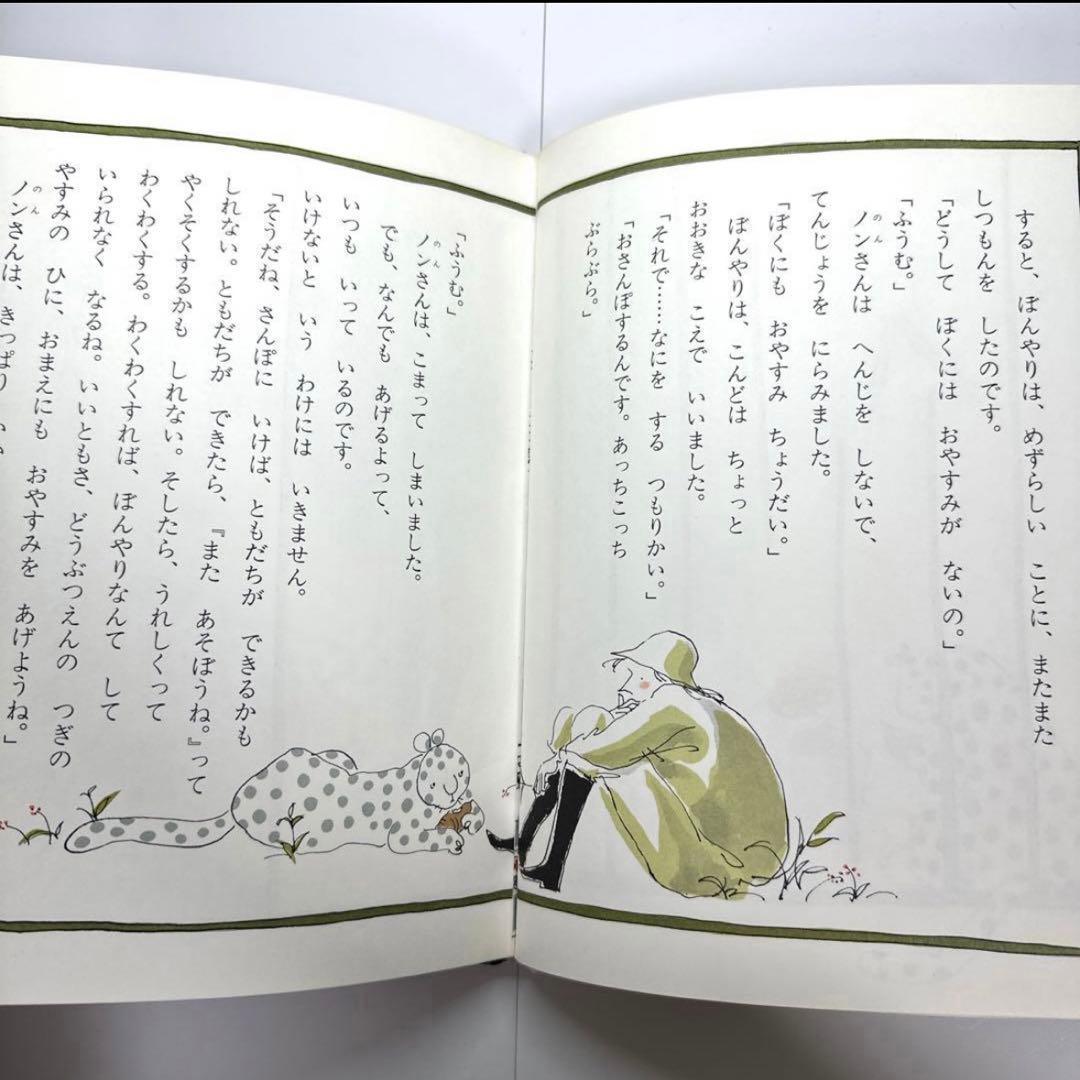 すると、ぼんやりは、めずらしい ことに、またまた
しつもんを したのです。
「どうして ぼくには おやすみが ないの。」
「ふうむ。」
ノンさんは へんじを しないで、
のん
てんじょうを にらみました。
「ぼくにも おやすみ ちょうだい。」
ぼんやりは、こんどは ちょっと
おおきな こえで いいました。
「それで……なにを する つもりかい。」
「おさんぽするんです。あっちこっち
ぶらぶら。」
「ふうむ。」
ノンさんは、こまって しまいました。
のん
でも、なんでも あげるよって、
いつも いって いるのです。
いけないと いう わけには いきません。
「そうだね、さんぽに いけば、ともだちが できるかも
しれない。ともだちが できたら、『また あそぼうね。』って
やくそくするかも しれない。そしたら、うれしくって
わくわくする。わくわくすれば、ぼんやりなんて して
いられなく なるね。いいともさ、どうぶつえんの つぎの
やすみの ひに、おまえにも おやすみを あげようね。」
ノンさんは、きっぱり
のん